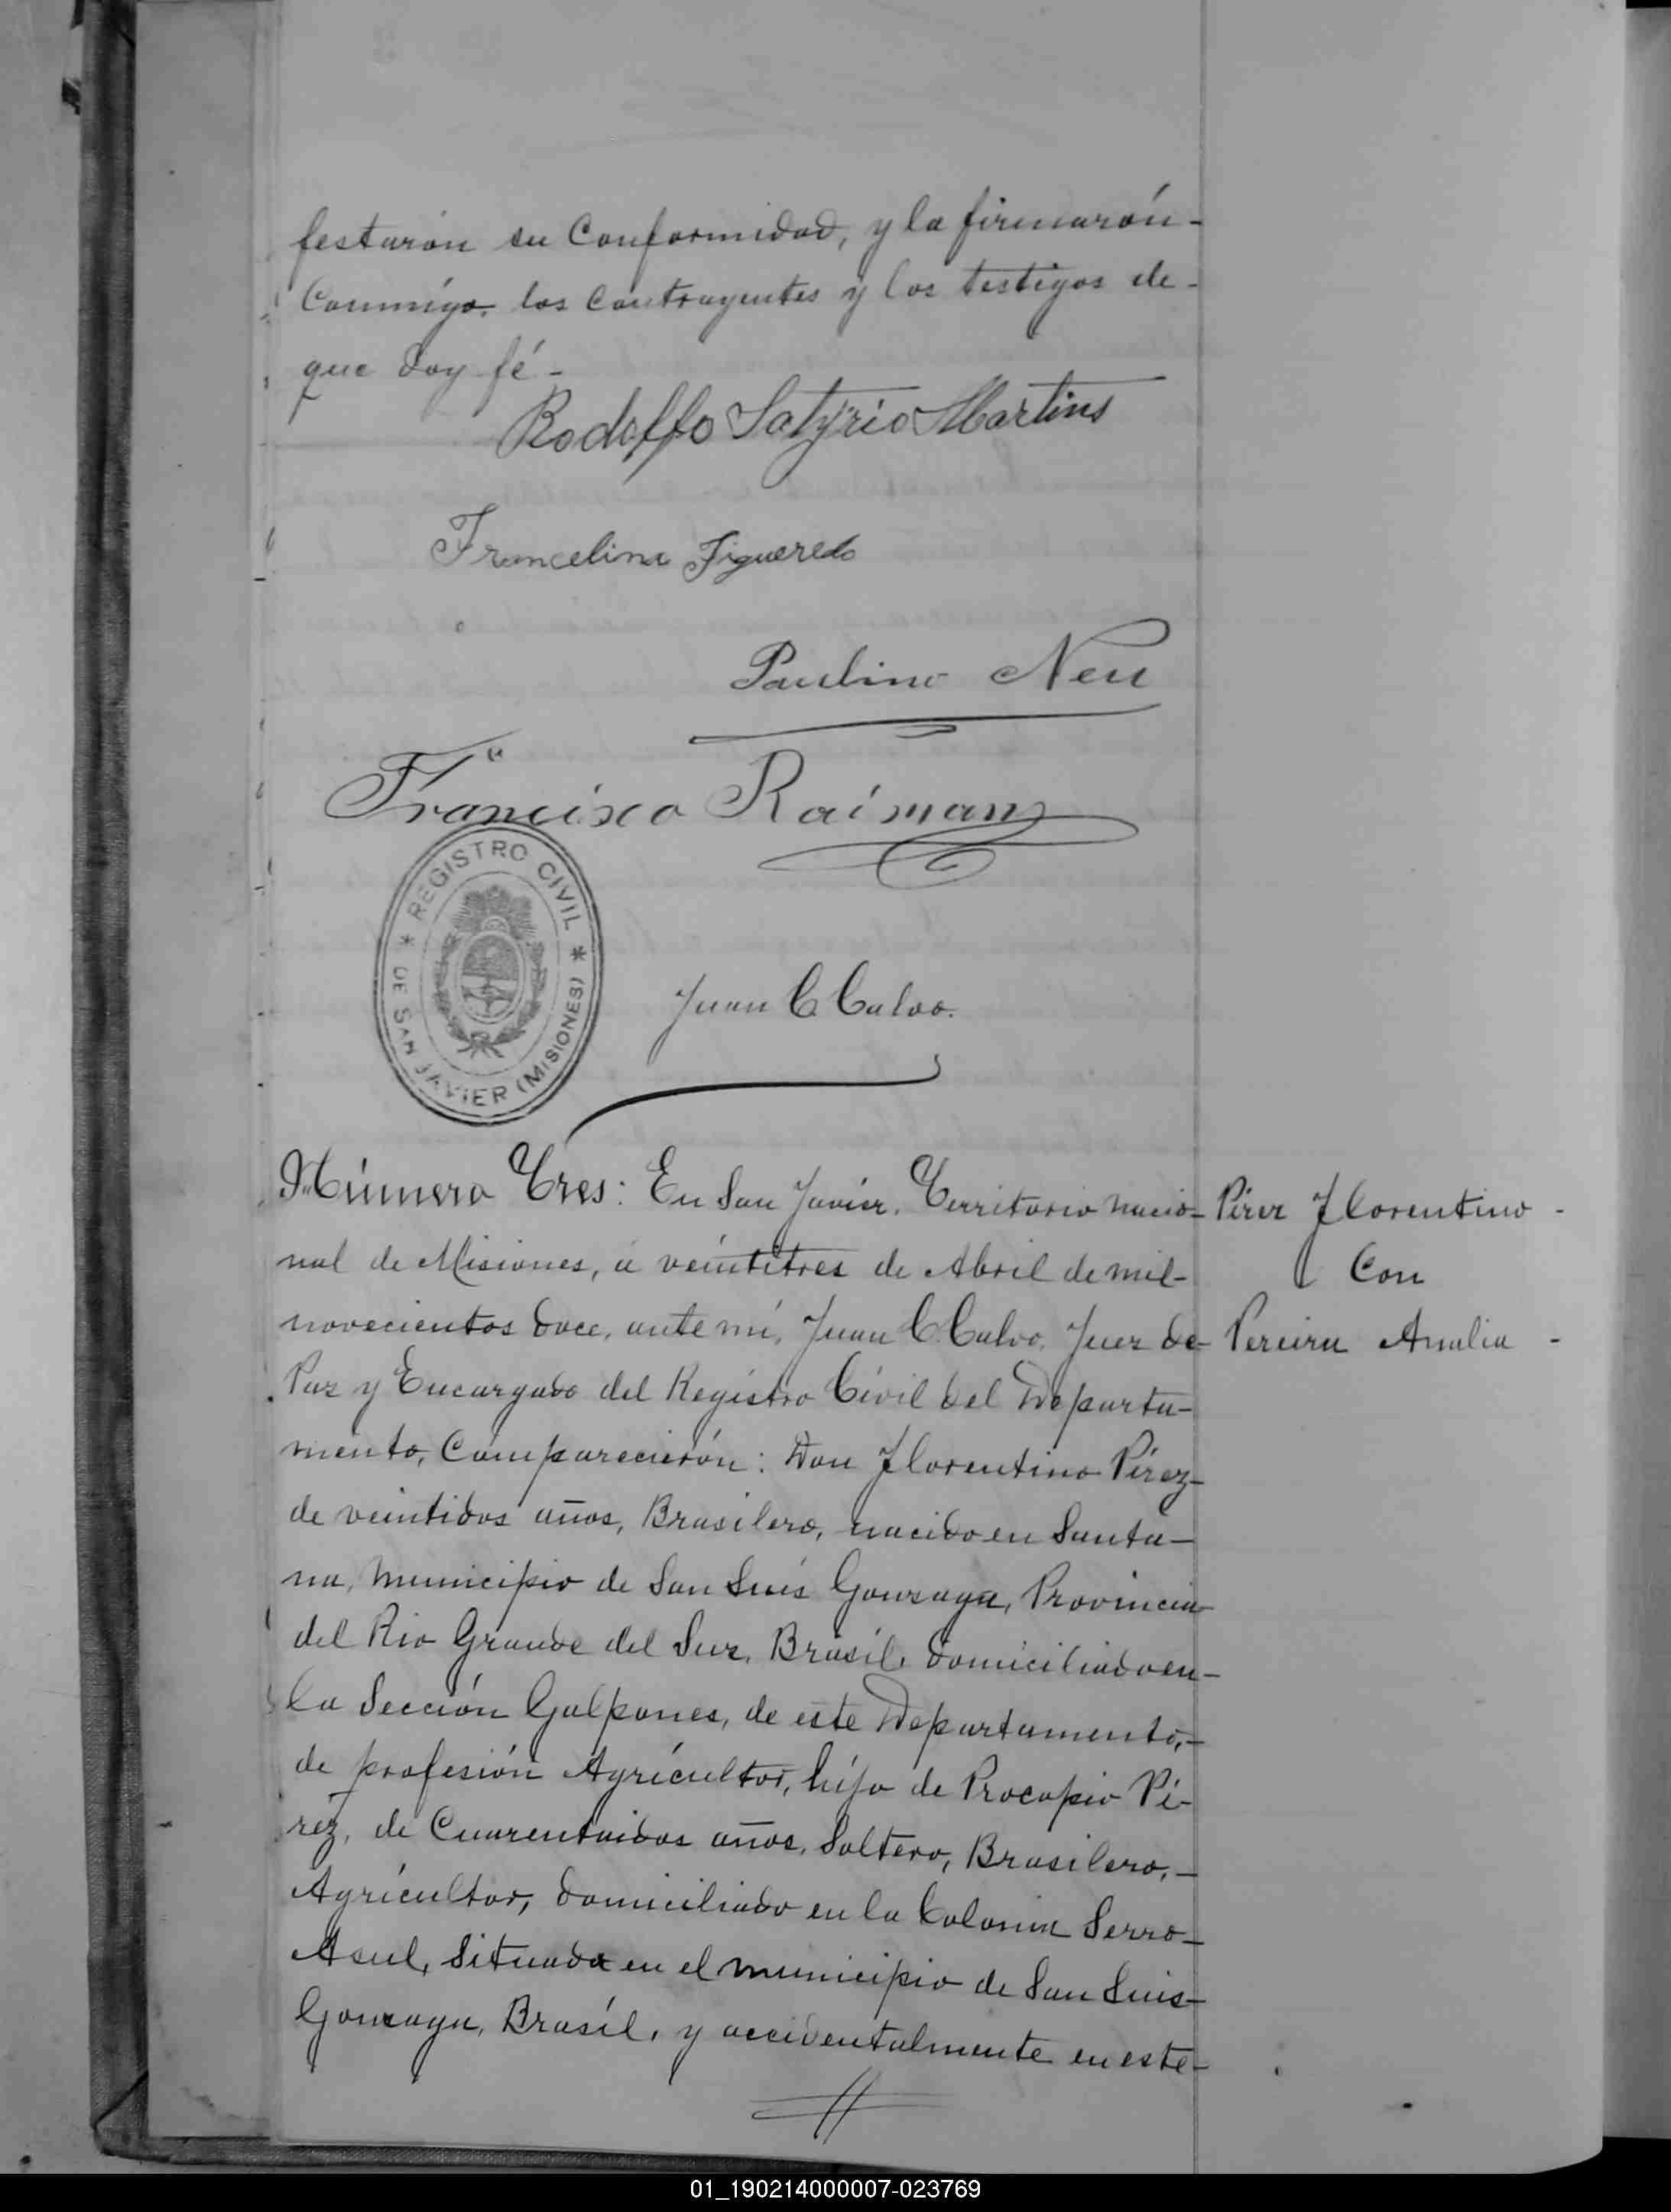 festarón su Conformidad, y la firmarón-
Conmígo, los Contrayentes y los testigos de-
que doy fé-
Rodolffo Satyrio Martins
Francelina Figueredo
Paulino Neu
Francisco Raiman
REGISTRO CIVIL
* DE SAN JAVIER (MISIONES) *
Juan C Calvo.
Número Tres: En San Javier, Territorio nacio-
nal de Misiones, á veíntitres de Abril de mil-
novecientos doce, ante mí, Juan C. Calvo, Juez de-
Paz y Encargado del Registro Civil del Departa-
mento, Comparecierón: Don Florentino Pérez-
de veintidos años, Brasilero, nacido en Santa-
na, Municipio de San Luis Gonzaga, Provincia-
del Rio Grande del Sur, Brasíl, domiciliado en-
la Sección Galpones, de este Departamento,-
de profesión Agrícultor, híjo de Procopio Pé-
réz, de Cuarentaidos años, Soltero, Brasilero,-
Agrícultor, domiciliado en la Colonia Serro-
Asul, Situada en el municipio de San Luis-
Gonzaga, Brasíl, y accidentalmente en este-
Pérez Florentino -
Con
Pereira Analia -
01_190214000007-023769